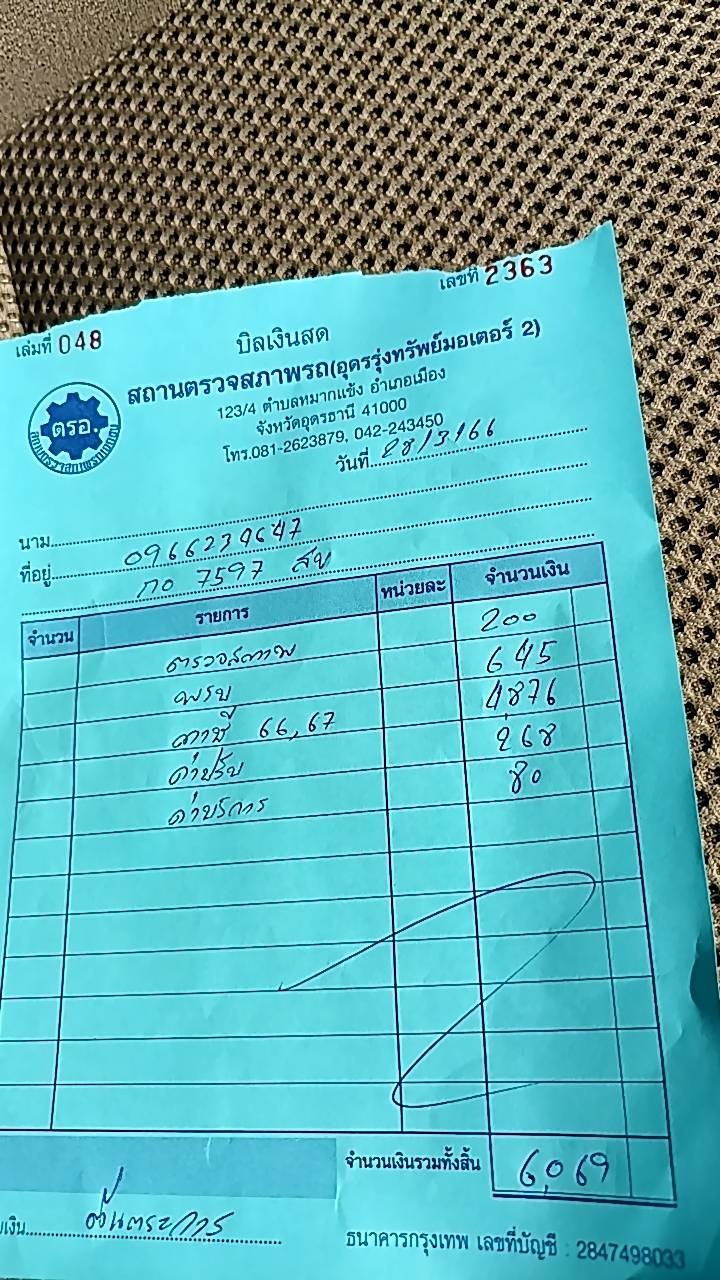 เล่มที่ 048
เลขที่ 2363
บิลเงินสด
สถานตรวจสภาพรถ(อุดรรุ่งทรัพย์มอเตอร์ 2)
123/4 ตำบลหมากแข้ง อำเภอเมือง
จังหวัดอุดรธานี 41000
โทร.081-2623879, 042-243450
ตรอ.
วันที่ 28/3/66
นาม
ที่อยู่ 0966239647
กo 7597 สข
จำนวน รายการ หน่วยละ จำนวนเงิน
ตรวจสภาพ 200
พรบ 645
ภาษี 66,67 4876
ค่าปรับ 268
ค่าบริการ 80
จำนวนเงินรวมทั้งสิ้น 6,069
ธนาคารกรุงเทพ เลขที่บัญชี : 2847498033